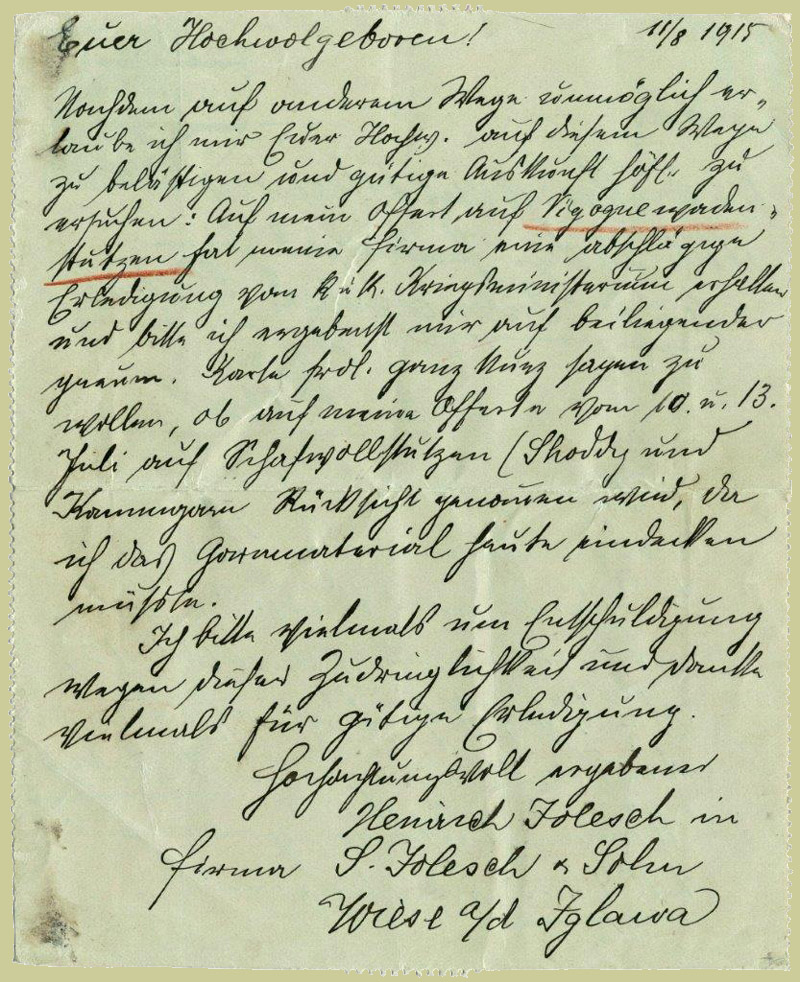 Euer Hochwolgeboren! 11/8 1915
Nachdem auf anderem Wege unmöglich er-
laube ich mir Euer Hochw. auf diesem Wege
zu belästigen und gütige Auskunft höfl. zu
ersuchen: Auf mein Offert auf Vigognewaden-
stutzen hat meine Firma eine abschlägige
Erledigung vom k.u.k. Kriegsministerium erhalten
und bitte ich ergebenst mir auf beiliegender
Karte frdl. ganz kurz sagen zu
wollen, ob auf meine Offerte vom 10. u. 13.
Juli auf Schafwollstutzen (Shoddy und
Kammgarn Rücksicht genommen wird, da
ich das Garnmaterial heute eindecken
müsste.
Ich bitte vielmals um Entschuldigung
wegen dieser Zudringlichkeit und danke
vielmals für gütige Erledigung.
Hochachtungsvoll ergebener
Heinrich Jolesch in
Firma S. Jolesch & Sohn
Wiese a/d Iglawa